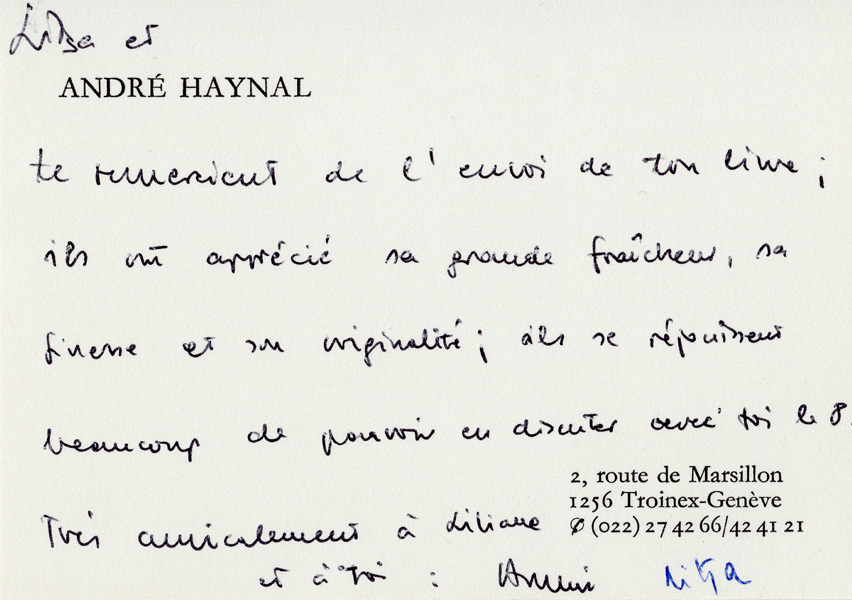 Litsa et
ANDRÉ HAYNAL
te remercient de l'envoi de ton livre ;
ils ont apprécié sa grande fraîcheur, sa
finesse et son originalité ; ils se réjouissent
beaucoup de pouvoir en discuter avec toi le 8.
2, route de Marsillon
1256 Troinex-Genève
✆ (022) 27 42 66/42 41 21
Très amicalement à Liliane
et à toi :